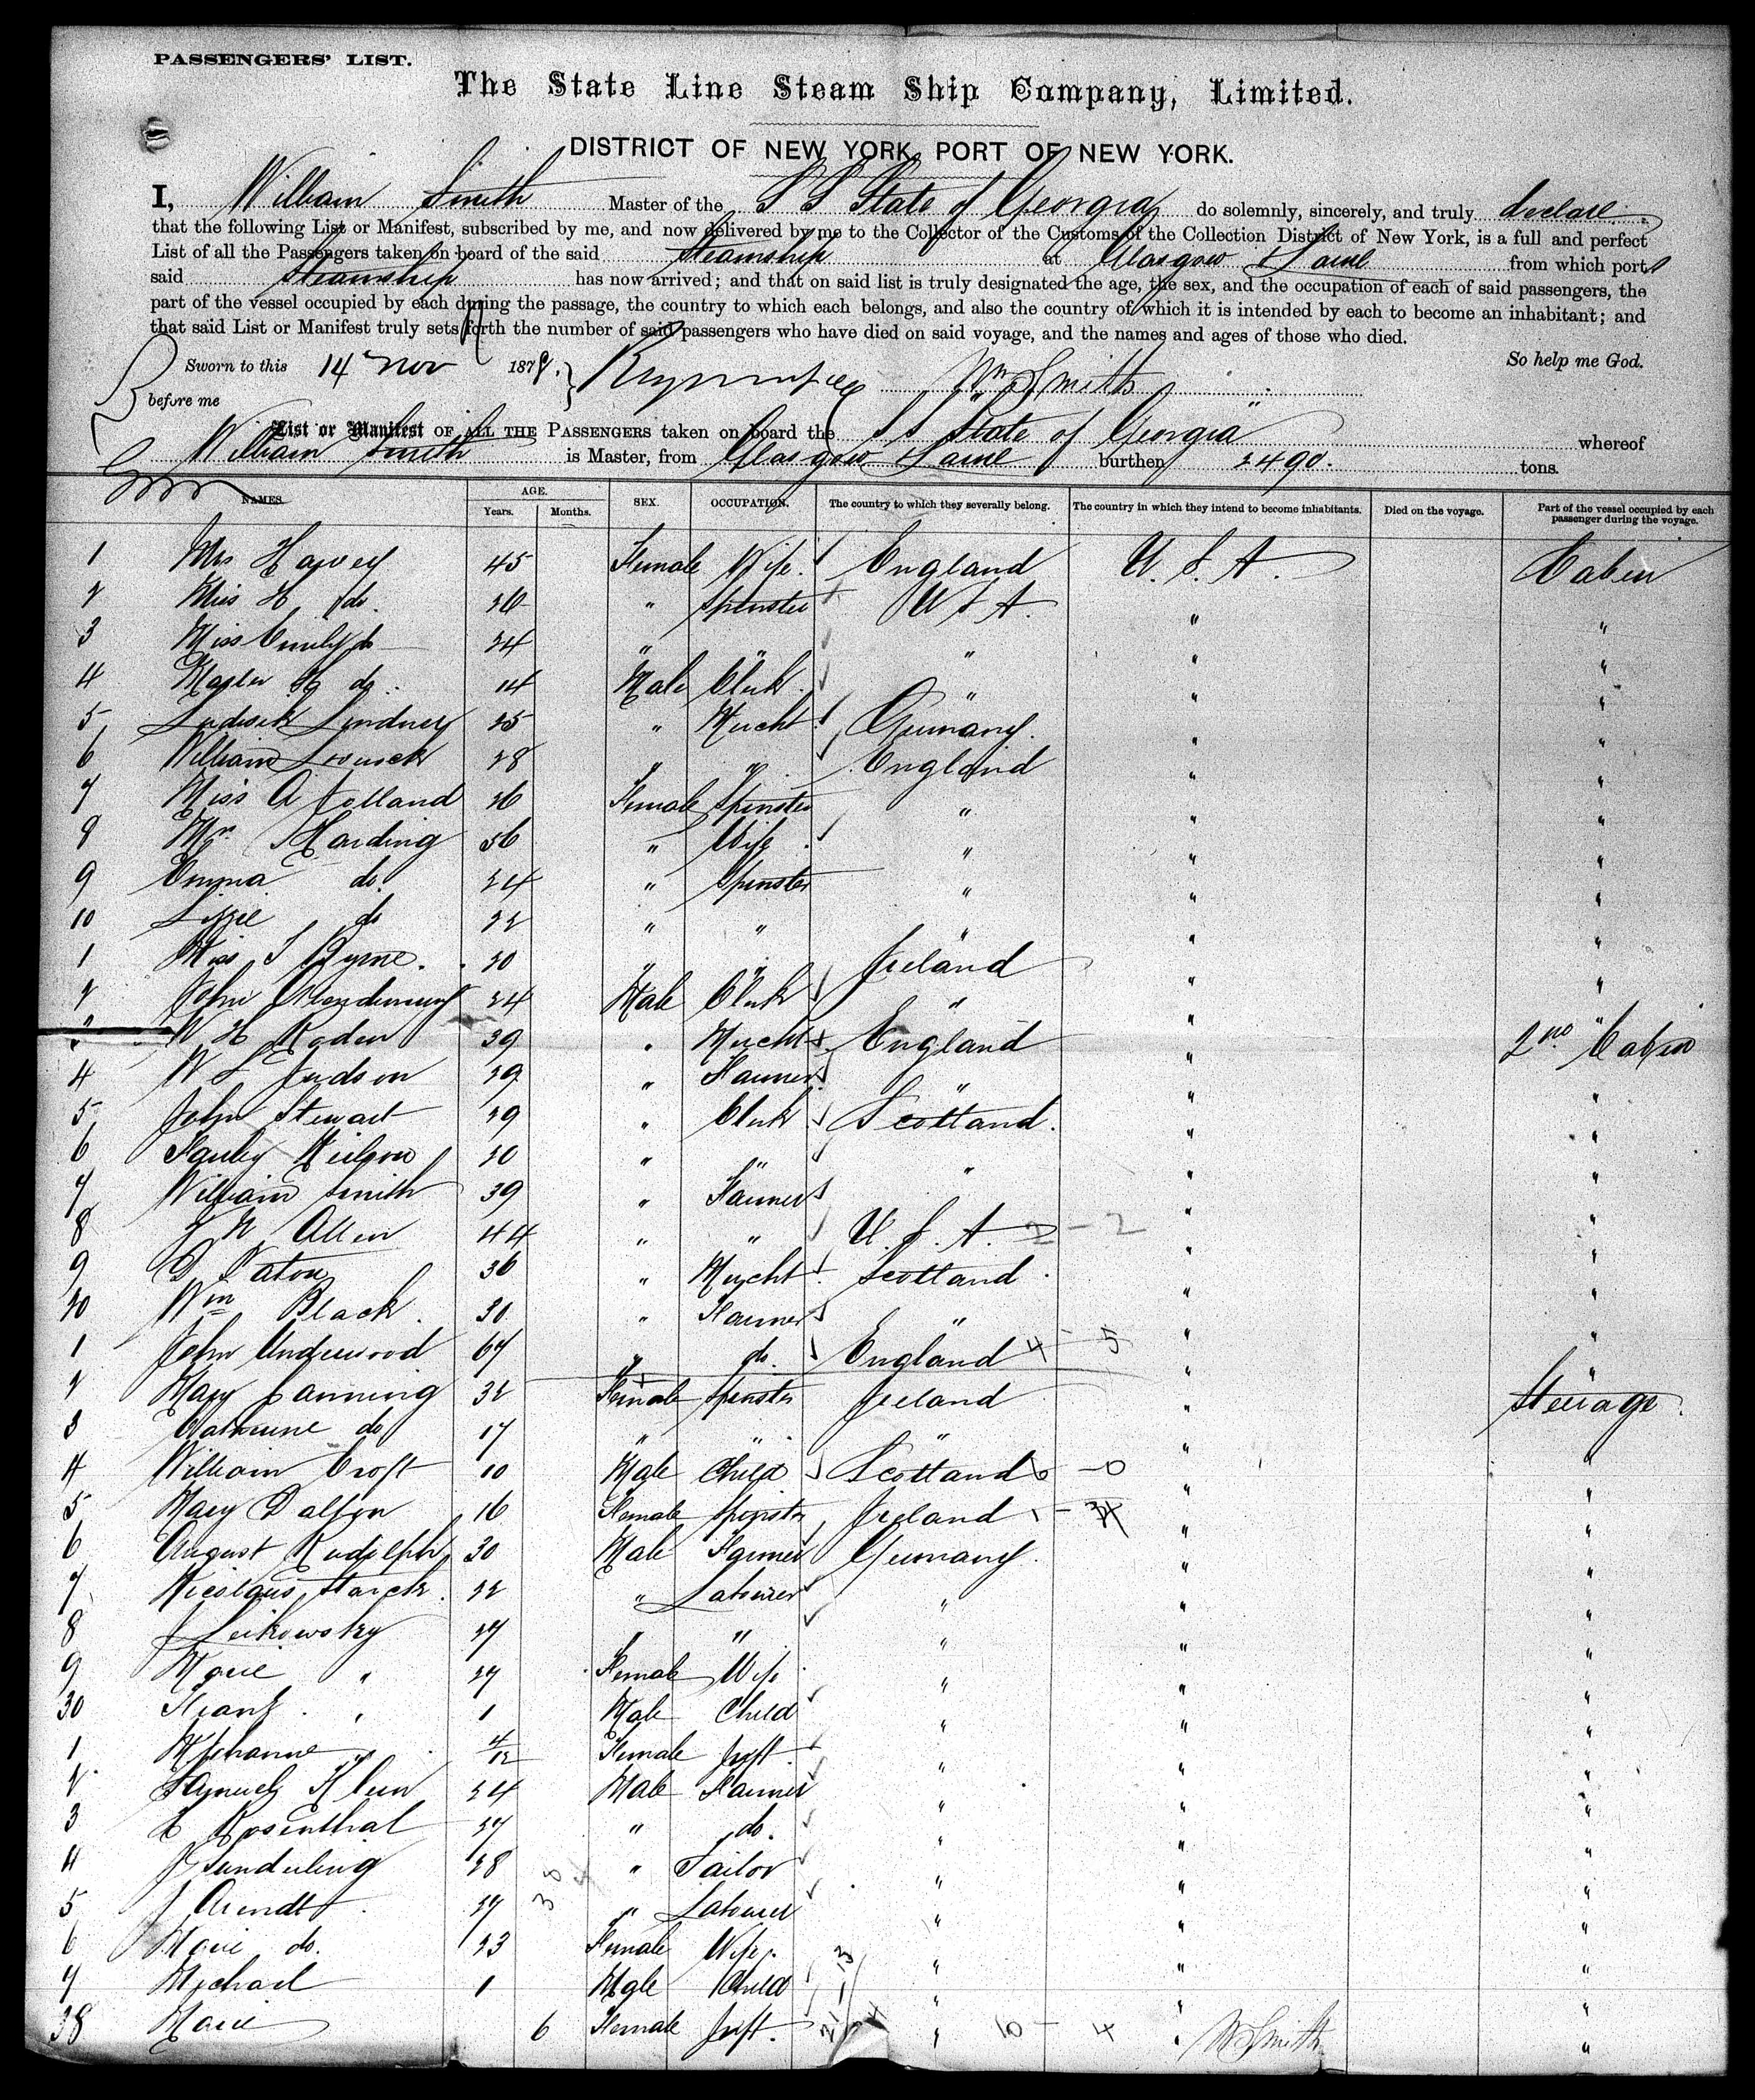 PASSENGERS' LIST.
The State Line Steam Ship Company, Limited.
DISTRICT OF NEW YORK, PORT OF NEW YORK.
I, William Smith Master of the S S State of Georgia do solemnly, sincerely, and truly declare
that the following List or Manifest, subscribed by me, and now delivered by me to the Collector of the Customs of the Collection District of New York, is a full and perfect
List of all the Passengers taken on board of the said Steamship at Glasgow & Larne from which ports
said Steamship has now arrived; and that on said list is truly designated the age, the sex, and the occupation of each of said passengers, the
part of the vessel occupied by each during the passage, the country to which each belongs, and also the country of which it is intended by each to become an inhabitant; and
that said List or Manifest truly sets forth the number of said passengers who have died on said voyage, and the names and ages of those who died.
So help me God.
Sworn to this 14 Nov 1879. Wm Smith
before me
List or Manifest OF ALL THE PASSENGERS taken on board the S S State of Georgia whereof
William Smith is Master, from Glasgow & Larne burthen 2490. tons.
NAMES. AGE. Years. Months. SEX. OCCUPATION. The country to which they severally belong. The country in which they intend to become inhabitants. Died on the voyage. Part of the vessel occupied by each passenger during the voyage.
1 Mrs Harvey 45 Female Wife England U.S.A. Cabin
2 Miss H do. 26 " Spinster U S A. " "
3 Miss Emily do 24 " " " " "
4 Master H do. 14 Male Clerk " " "
5 Lindner 25 " Mercht Germany. " "
6 William 28 " " England " "
7 Miss A Jolland 26 Female Spinster " " "
8 Harding 56 " Wife " " "
9 Emma do. 24 " Spinster " " "
10 Lizzie do 22 " " " " "
1 Miss Byrne. 20 " " Ireland " "
2 John 24 Male Clerk " " "
3 W H Roden 39 " Mercht England " 2nd Cabin
4 W S Judson 29 " Farmer " " "
5 John Stewart 29 " Clerk Scotland. " "
6 Neilson 20 " " " " "
7 William Smith 39 " Farmer " "
8 Allen 44 " " U.S.A. 2 - 2 " "
9 D Paton 36 " Mercht Scotland " "
20 Wm Black 30 " Farmer " " "
1 John Underwood 67 " do. England 4 - 5 " "
2 Mary Canning 32 Female Spinster Ireland " Steerage
3 Catherine do 17 " " " " "
4 William Croft 10 Male Child Scotland 0 - 0 " "
5 Mary Dalton 16 Female Spinster Ireland " "
6 August Rudolph 30 Male Farmer Germany. " "
7 Nicolaus Starck 22 " Labourer " " "
8 J Leikowsky 27 " " " " "
9 Marie " 27 Female Wife " " "
30 Franz " 1 Male Child " " "
1 4/12 Female Inft. " " "
2 Samuel Klein 24 Male Farmer " " "
3 Rosenthal 27 " do. " " "
4 J 28 " Tailor " " "
5 J Arendt 27 " Labourer " " "
6 Marie do. 23 Female Wife. " " "
7 Michael 1 Male Child " " "
38 Marie 6 Female Inft. " 10 - 4 " W Smith "